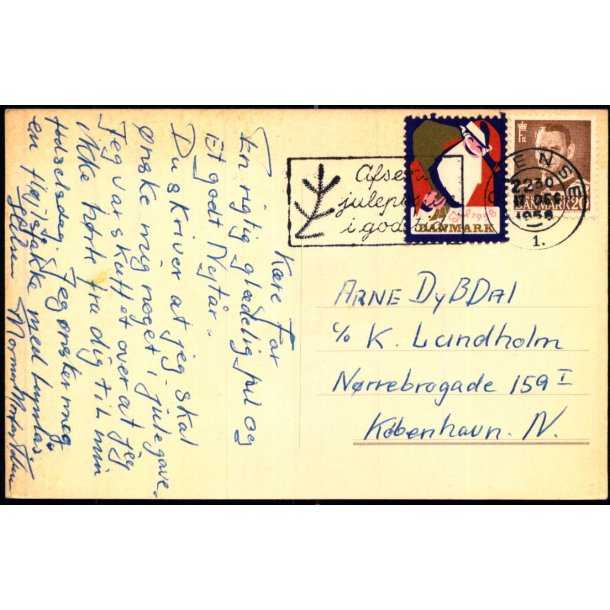 Kære Far
En rigtig glædelig jul og
Et godt Nytår.
Du skriver at jeg skal
Ønske mig noget i julegave.
Jeg var skuffet over at jeg
ikke hørte fra dig til min
fødselsdag. Jeg ønsker meg
en fløjlsjakke med lynlås.
Afsend
julepost
i god
Jul 1956
DANMARK
DANMARK 20
ODENSE
22 30
DEC
1956
1.
ARNE DYBDAL
c/o K. Lundholm
Nørrebrogade 159 I
København. N.